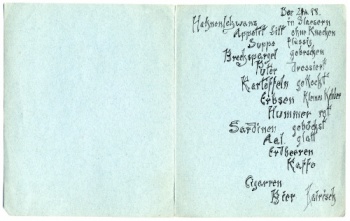 Hahnenschwanz in Glaesern
Appetit Sild ohne Knochen
Suppe flüssig
Brechspargel gebrochen
Puter dressiert
Kartoffeln gekocht
Erbsen kleine Kinder
Hummer rot
Sardinen gebüchst
Aal glatt
Erdbeeren
Kaffe
Cigarren
Bier